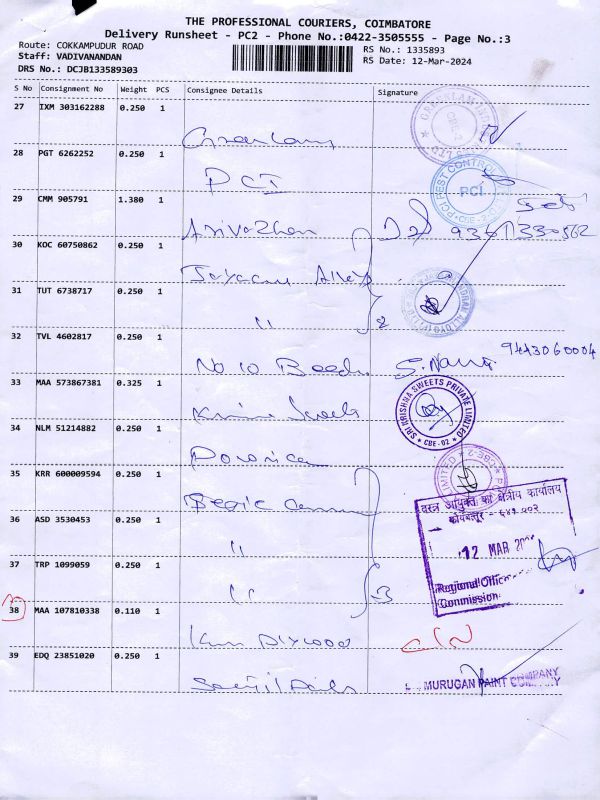 THE PROFESSIONAL COURIERS, COIMBATORE
Delivery Runsheet - PC2 - Phone No.:0422-3505555 - Page No.:3
Route: COKKAMPUDUR ROAD
RS No.: 1335893
Staff: VADIVANANDAN
RS Date: 12-Mar-2024
DRS No.: DCJB133589303
S No Consignment No Weight PCS Consignee Details Signature
27 IXM 303162288 0.250 1
28 PGT 6262252 0.250 1
PCI
PCI
29 CMM 905791 1.380 1
Arivazhan
30 KOC 60750862 0.250 1
31 TUT 6738717 0.250 1
" 2
32 TVL 4602817 0.250 1
9443060004
No 10 Beedi
33 MAA 573867381 0.325 1
SRI KRISHNA SWEETS PRIVATE LIMITED
* CBE-02 *
34 NLM 51214882 0.250 1
35 KRR 600009594 0.250 1
वस्त्र आयुक्त का क्षेत्रीय कार्यालय
36 ASD 3530453 0.250 1
"
12 MAR
37 TRP 1099059 0.250 1
" 3
Regional Office
Commission
38 MAA 107810338 0.110 1
Plywood
39 EDQ 23851020 0.250 1
MURUGAN PAINT COMPANY